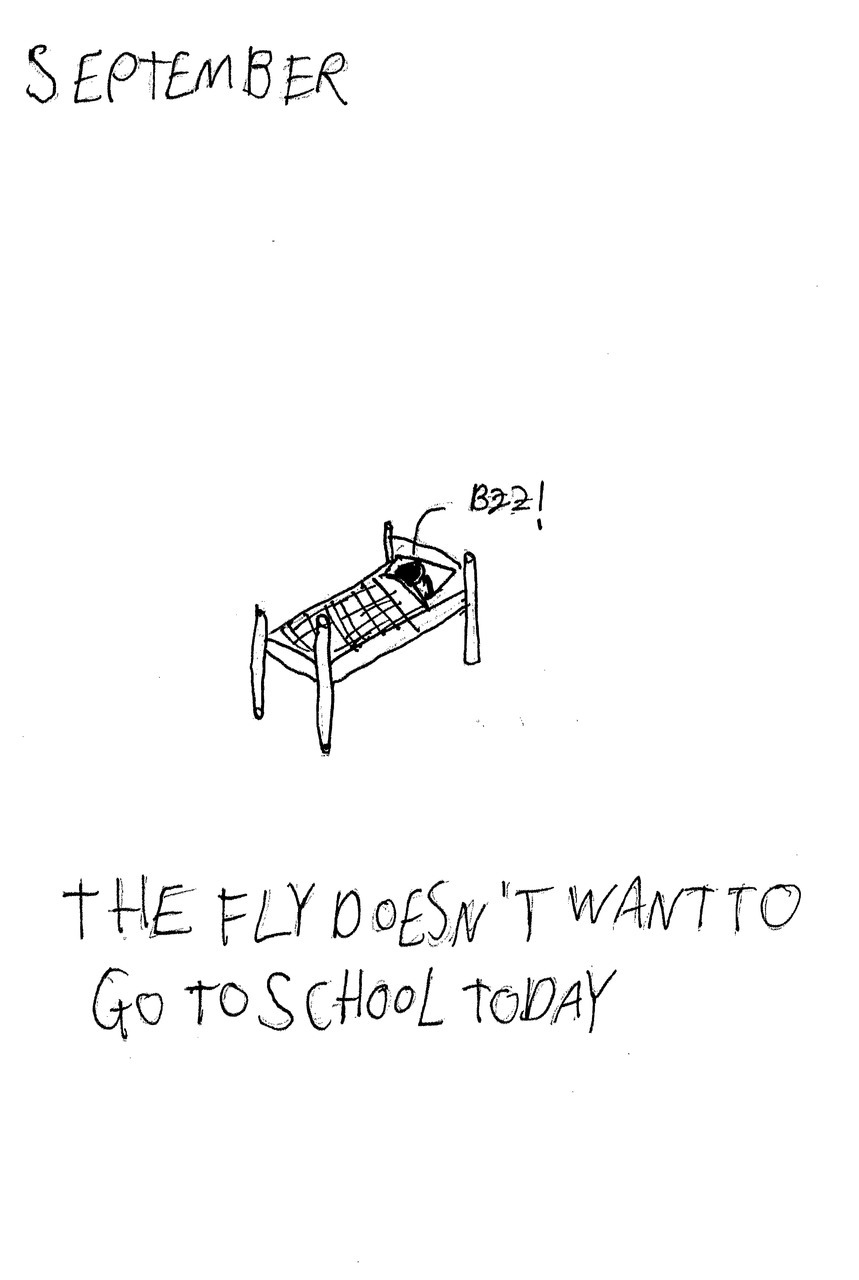 SEPTEMBER
BZZ!
THE FLY DOESN'T WANT TO
GO TO SCHOOL TODAY